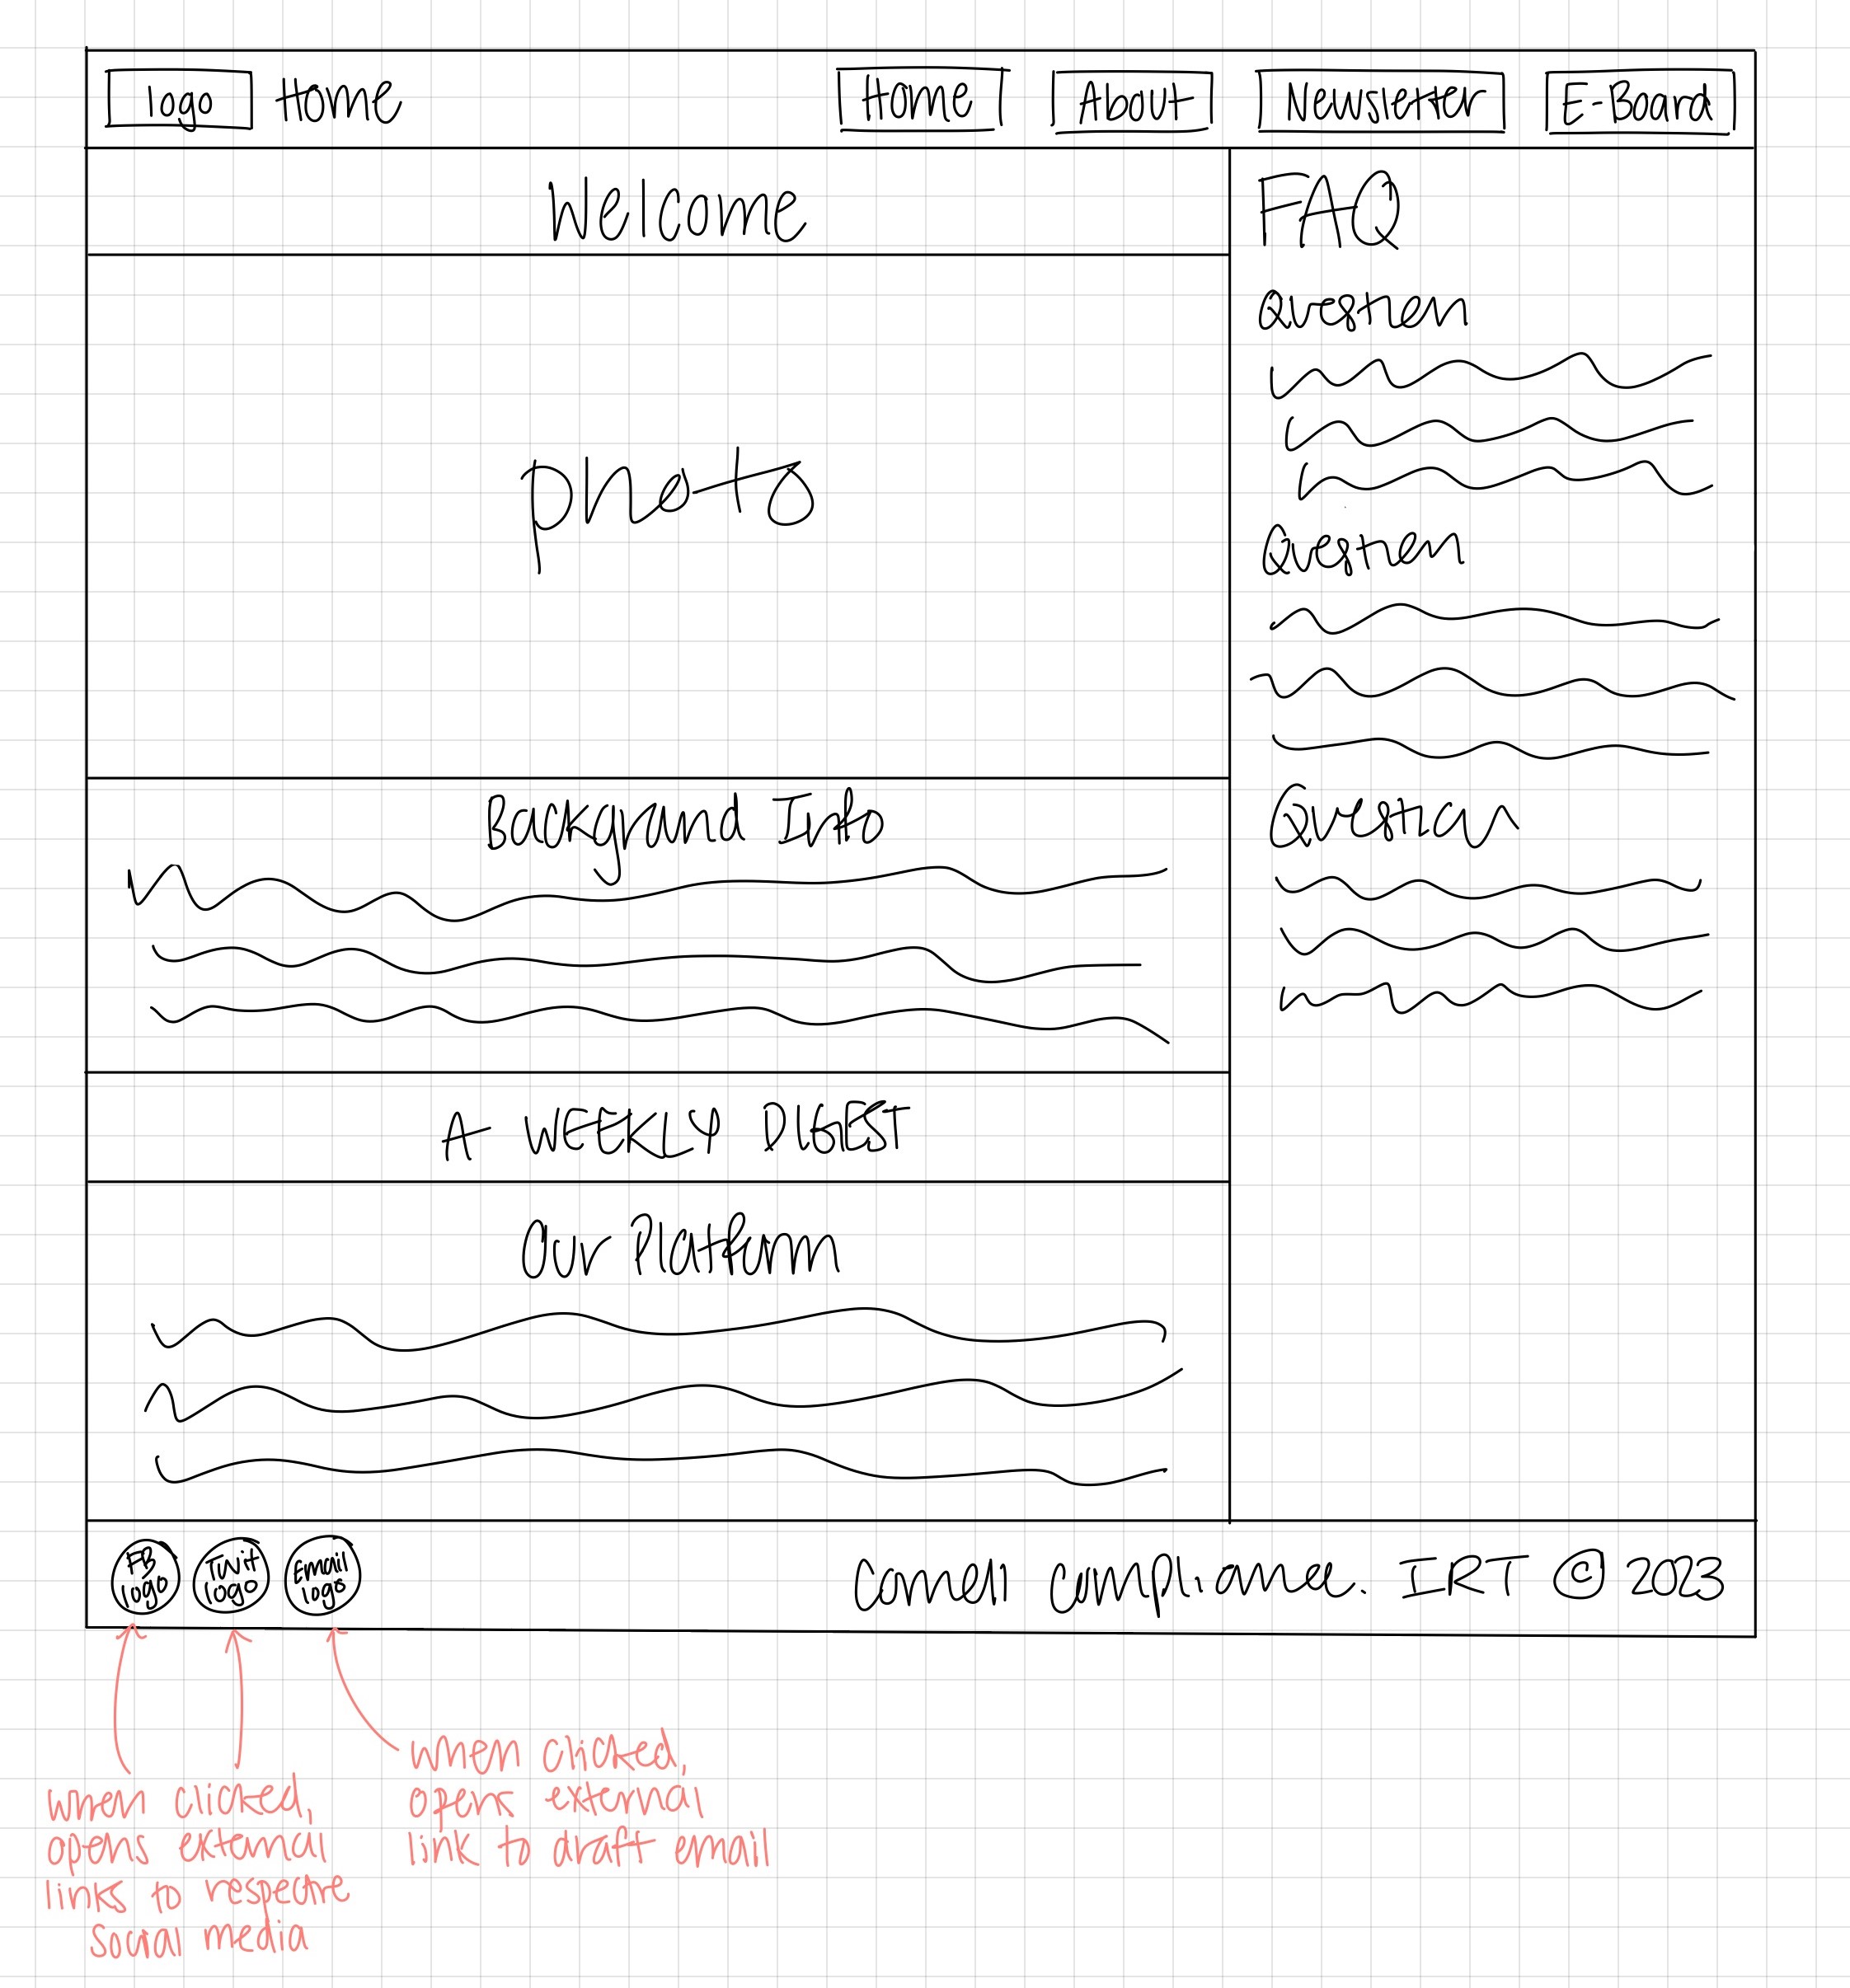 logo Home Home About Newsletter E-Board
Welcome
photo
Background Info
A WEEKLY DIGEST
Our Platform
FAQ
Question
Question
Question
FB logo
Twit logo
Email logo
Cornell Compliance. IRT © 2023
when clicked,
opens external
links to respective
social media
when clicked,
opens external
link to draft email